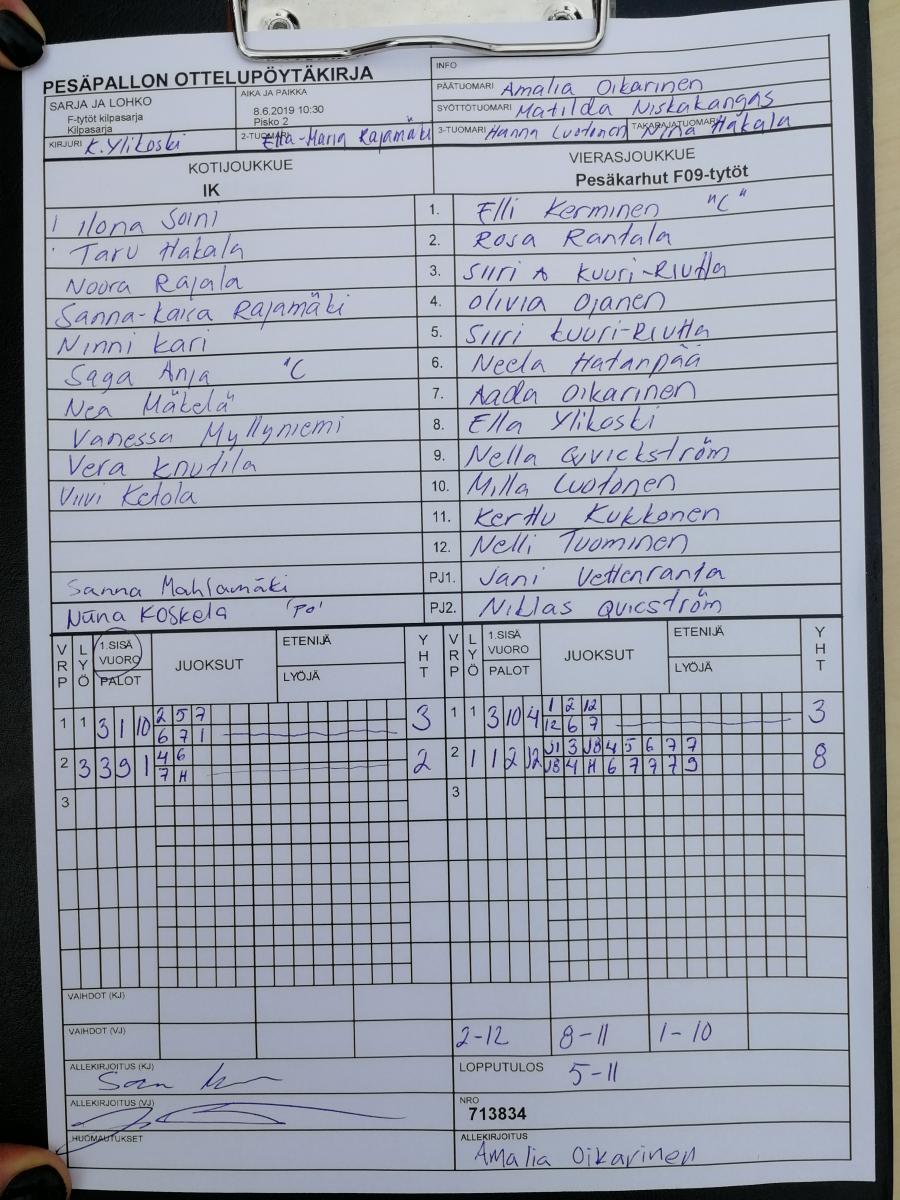 PESÄPALLON OTTELUPÖYTÄKIRJA
INFO
SARJA JA LOHKO
F-tytöt kilpasarja
Kilpasarja
AIKA JA PAIKKA
8.6.2019 10:30
Pisko 2
PÄÄTUOMARI Amalia Oikarinen
SYÖTTÖTUOMARI Matilda Niskakangas
KIRJURI K. Ylikoski
2-TUOMARI Ella-Maria Rajamäki
3-TUOMARI Hanna Luotonen
TAKARAJATUOMARI Nina Hakala
KOTIJOUKKUE
IK
VIERASJOUKKUE
Pesäkarhut F09-tytöt
Ilona Soini 1. Elli Kerminen "C"
Taru Hakala 2. Rosa Rantala
Noora Rajala 3. Siiri A Kuuri-Riutta
Sanna-Kaisa Rajamäki 4. Olivia Ojanen
Ninni Kari 5. Siiri Kuuri-Riutta
Saga Anja "C 6. Neela Hatanpää
Nea Mäkelä 7. Aada Oikarinen
Vanessa Myllyniemi 8. Ella Ylikoski
Vera Knutila 9. Nella Qvickström
Viivi Ketola 10. Milla Luotonen
11. Kerttu Kukkonen
12. Nelli Tuominen
Sanna Mahlamäki PJ1. Jani Vettenranta
Niina Koskela 'PO' PJ2. Niklas Qvicström
VRP LYÖ 1.SISÄ VUORO PALOT JUOKSUT ETENIJÄ LYÖJÄ YHT VRP LYÖ 1.SISÄ VUORO PALOT JUOKSUT ETENIJÄ LYÖJÄ YHT
1 1 3 1 10 2 5 7 3 1 1 3 10 4 1 2 12 3
6 7 1 12 6 7
2 3 3 9 1 4 6 2 2 1 1 2 J2 J1 3 J3 4 5 6 7 7 8
7 H J3 4 H 6 7 7 7 9
3 3
VAIHDOT (KJ)
VAIHDOT (VJ) 2-12 8-11 1-10
ALLEKIRJOITUS (KJ)
LOPPUTULOS 5-11
ALLEKIRJOITUS (VJ)
NRO
713834
HUOMAUTUKSET
ALLEKIRJOITUS
Amalia Oikarinen